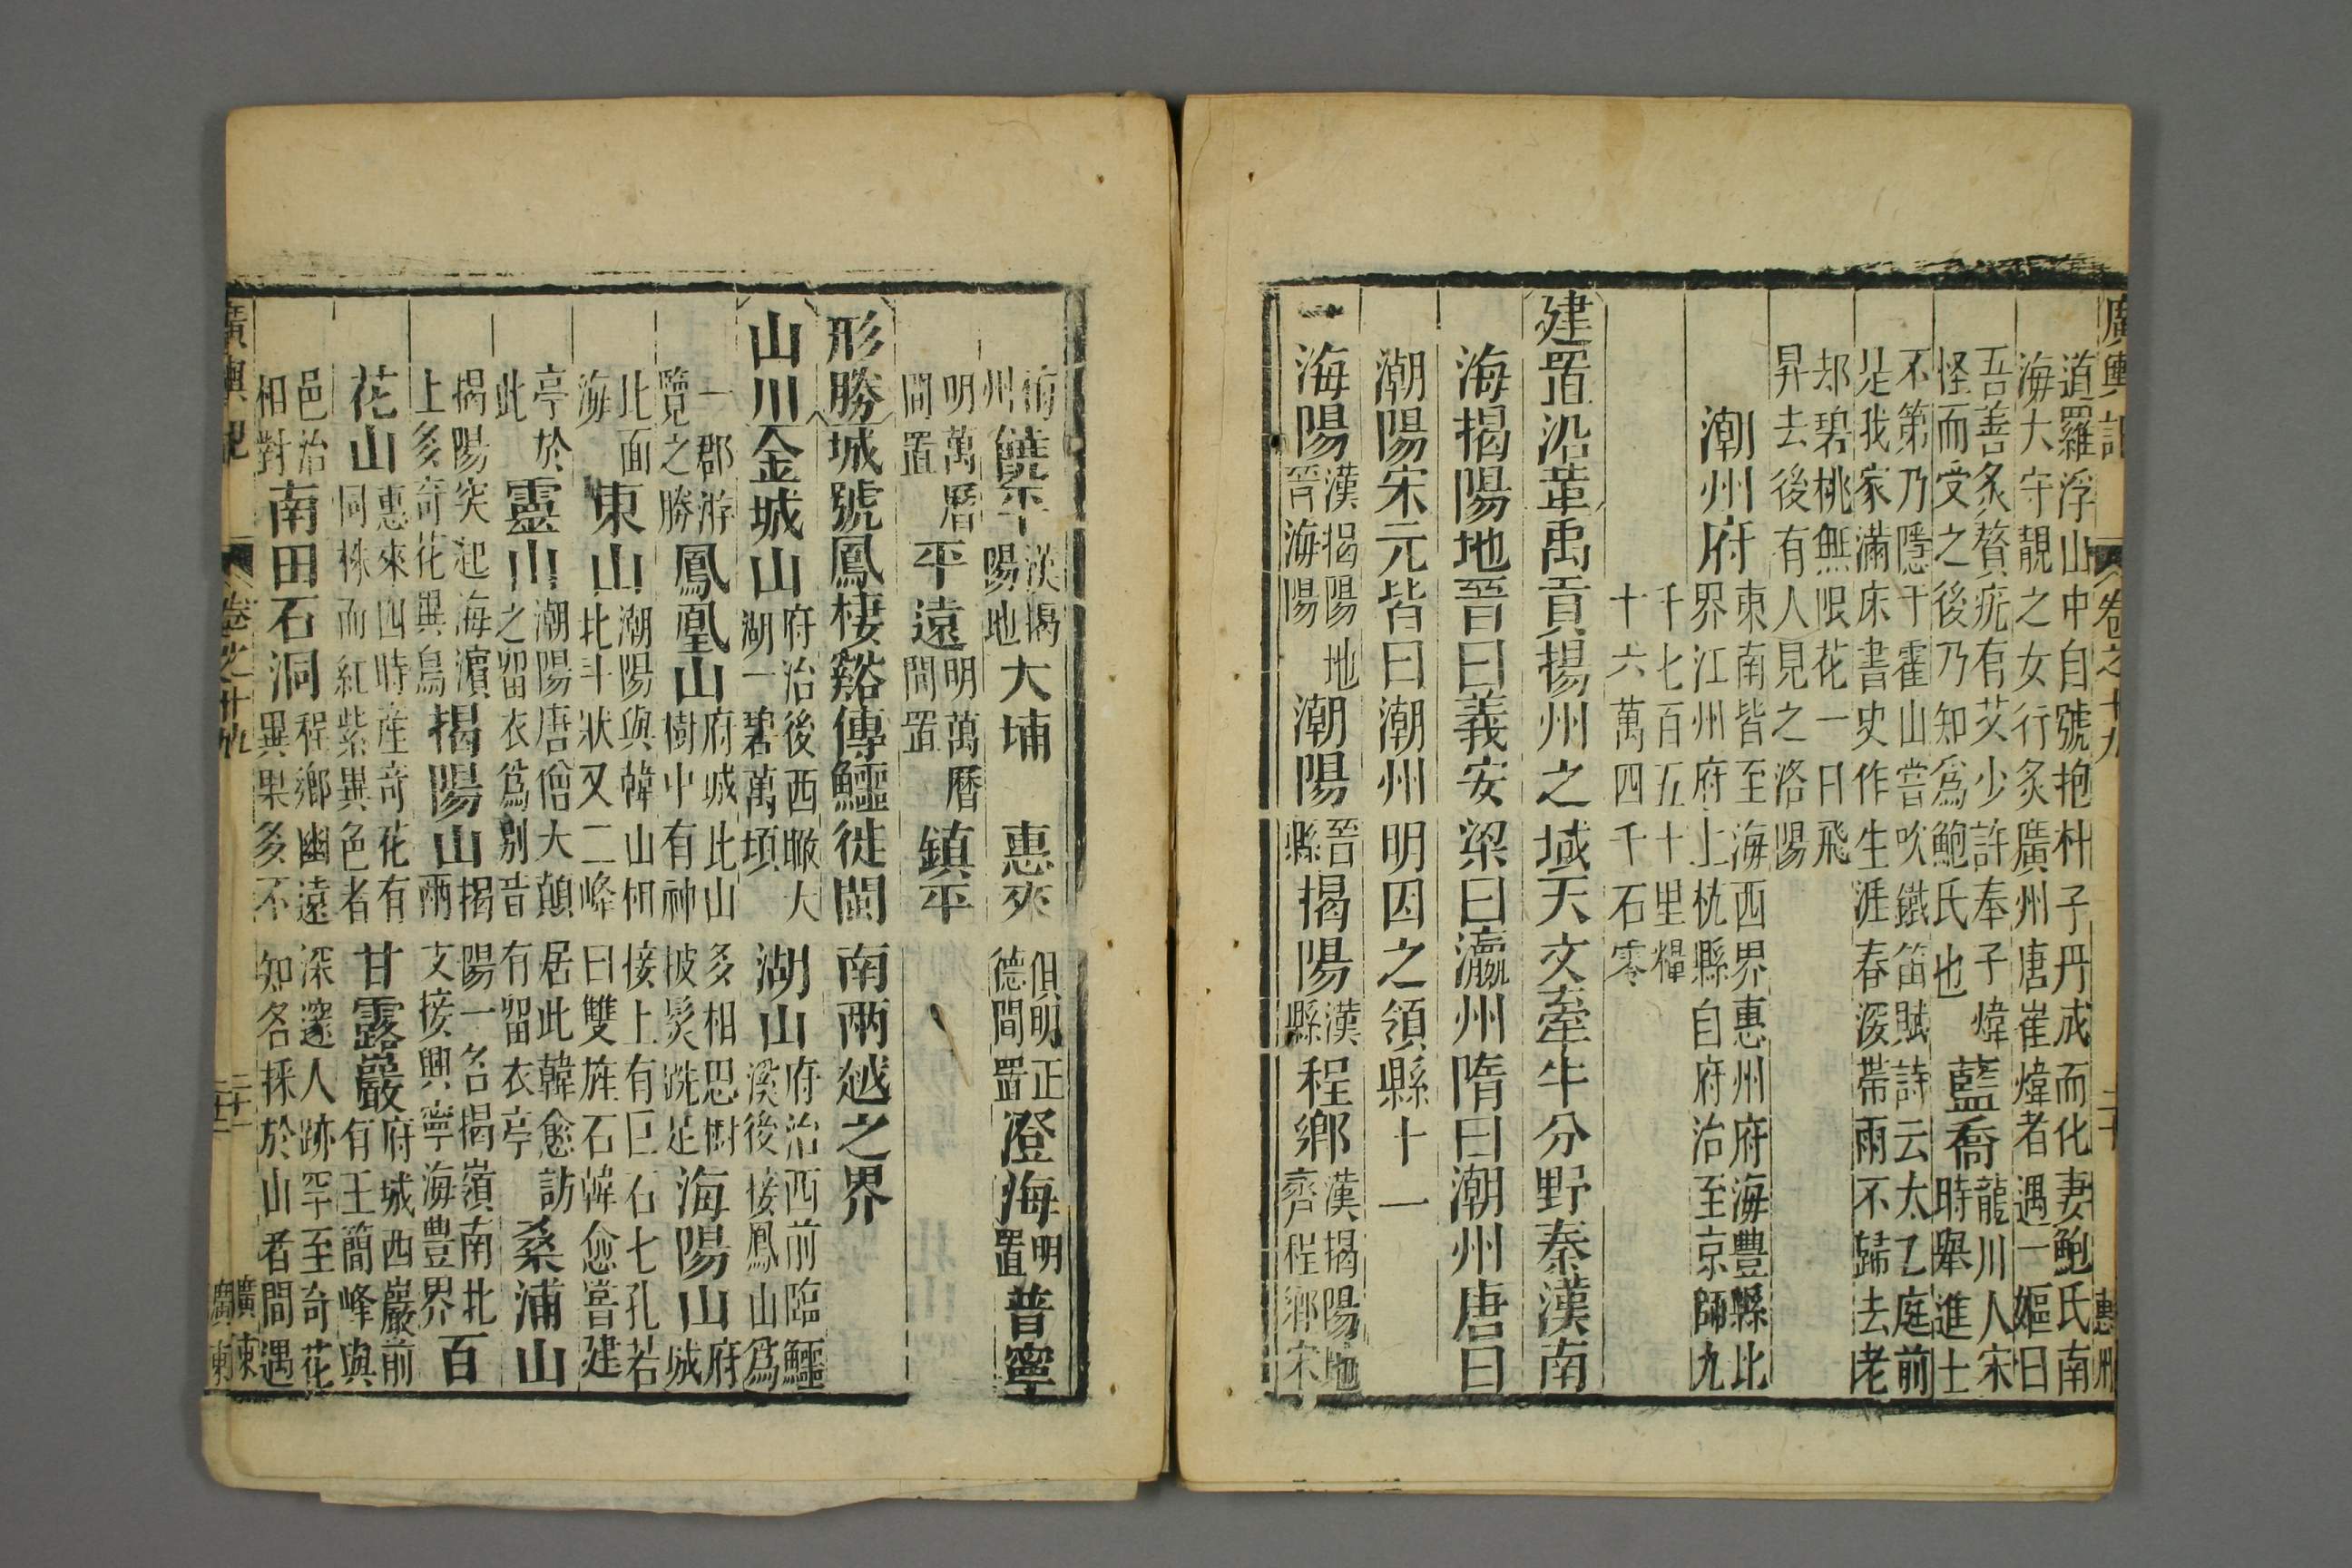 廣輿記 卷之十九 二十 惠州
道羅浮山中自號抱朴子丹成而化妻鮑氏南
海大守靚之女行炙廣州唐崔煒者遇一嫗曰
吾善炙贅疣有艾少許奉子煒
怪而受之後乃知爲鮑氏也
藍喬
龍川人宋
時舉進士
不第乃隱于霍山嘗吹鐵笛賦詩云太乙庭前
是我家滿床書史作生涯春深帶雨不歸去老
却碧桃無限花一日飛
昇去後有人見之洛陽
潮州府
東南皆至海西界惠州府海豐縣北
界江州府上杭縣自府治至京師九
千七百五十里糧
十六萬四千石零
建置沿革禹貢揚州之域天文牽牛分野秦漢南
海揭陽地晉曰義安梁曰瀛州隋曰潮州唐曰
潮陽宋元皆曰潮州明因之領縣十一
一海陽
漢揭陽地
晉海陽
潮陽
晉
縣
揭陽
漢
縣
程鄉
漢揭陽地
齊程鄉宋
州
饒平
漢揭
陽地
大埔 惠來
俱明正
德間置
澄海
明
置
普寧
明萬曆
間置
平遠
明萬曆
間置
鎮平
形勝城號鳳棲谿傳鱷徙閩南兩越之界
山川金城山
府治後西瞰大
湖一碧萬頃
湖山
府治西前臨鱷
溪後接鳳山爲
一郡游
覽之勝
鳳凰山
府城北山
樹中有神
多相思樹
披髮跣足
海陽山
府
城
北面
海
東山
潮陽與韓山相
北斗狀又二峰
接上有巨石七孔若
曰雙旌石韓愈嘗建
亭於
此
靈山
潮陽唐僧大顛
之留衣爲别昔
居此韓愈訪
有留衣亭
桑浦山
揭陽突起海濵
上多奇花異鳥
揭陽山
揭
兩
陽一名揭嶺南北
支接興寧海豐界
百
花山
惠來四時産奇花有
同株而紅紫異色者
甘露巖
府城西巖前
有王簡峰與
邑治
相對
南田石洞
程鄉幽遠
異果多不
深邃人跡罕至奇花
知名採於山者間遇
廣輿記 卷之十九 二十一 廣東